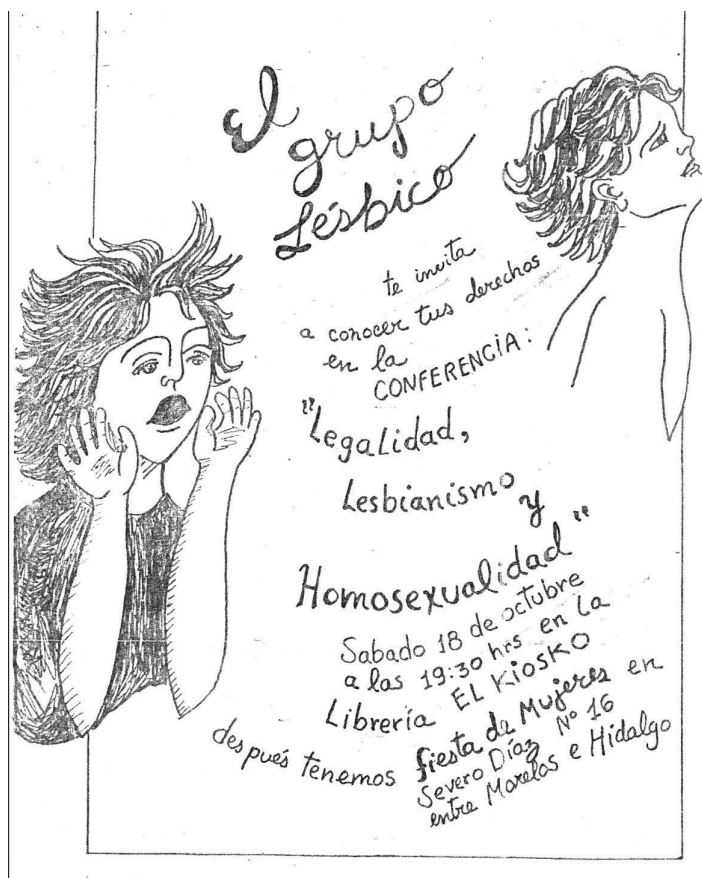 El
grupo
Lésbico
te invita
a conocer tus derechos
en la
CONFERENCIA:
"Legalidad,
Lesbianismo
y
Homosexualidad"
Sabado 18 de octubre
a las 19:30 hrs en la
Librería EL KIOSKO
después tenemos fiesta de Mujeres en
Severo Díaz Nº 16
entre Morelos e Hidalgo